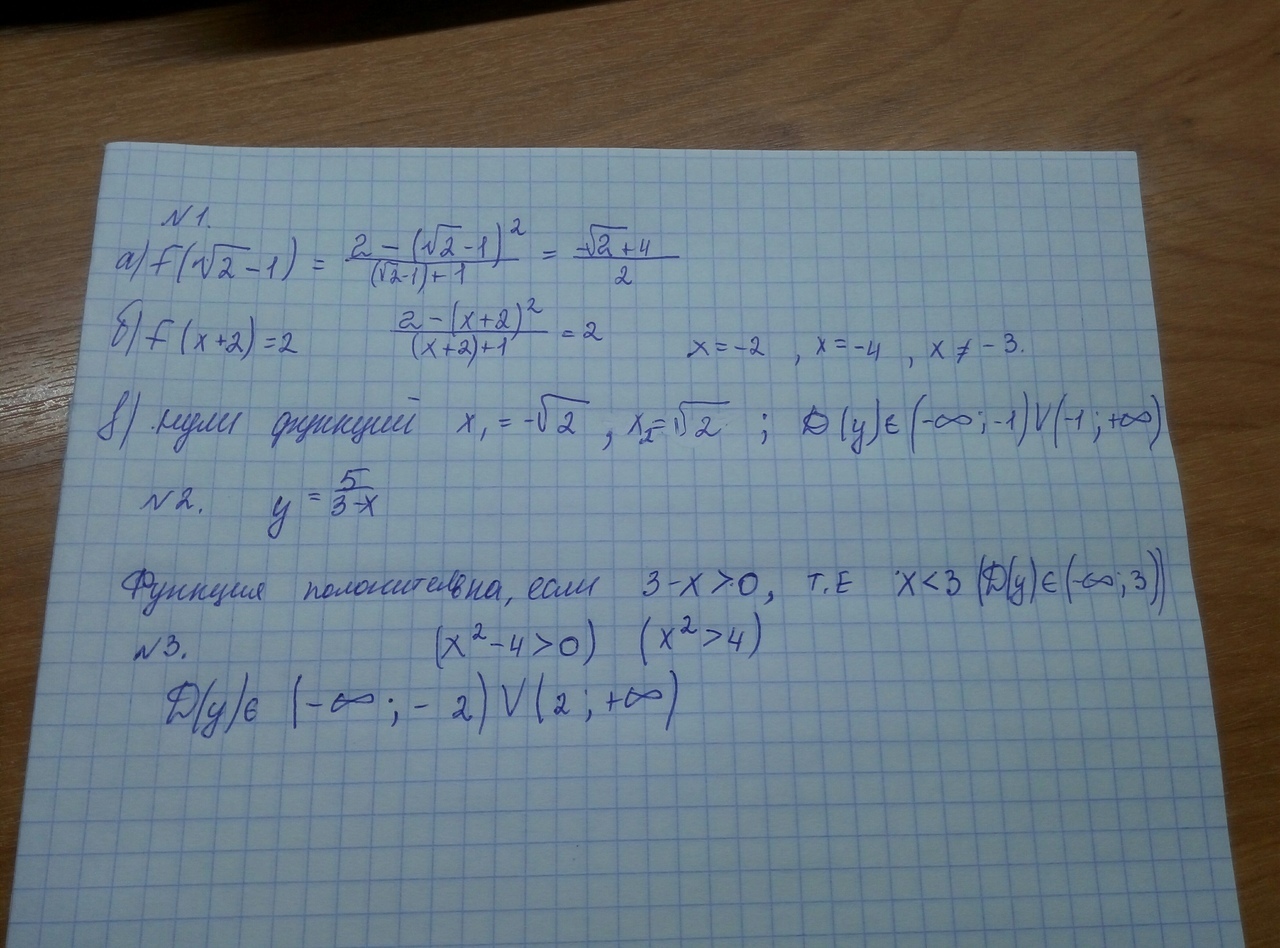 N1.
а) f(√2-1) = (2-(√2-1)²)/((√2-1)+1) = (-√2+4)/2
б) f(x+2)=2 (2-(x+2)²)/((x+2)+1) = 2 x=-2 , x=-4 , x≠-3.
в) нули функций x₁=-√2 , x₂=√2 ; D(y)∈(-∞;-1)V(-1;+∞)
N2. y = 5/(3-x)
Функция положительна, если 3-x>0, т.е x<3 (D(y)∈(-∞;3))
N3. (x²-4>0) (x²>4)
D(y)∈ (-∞;-2)V(2;+∞)